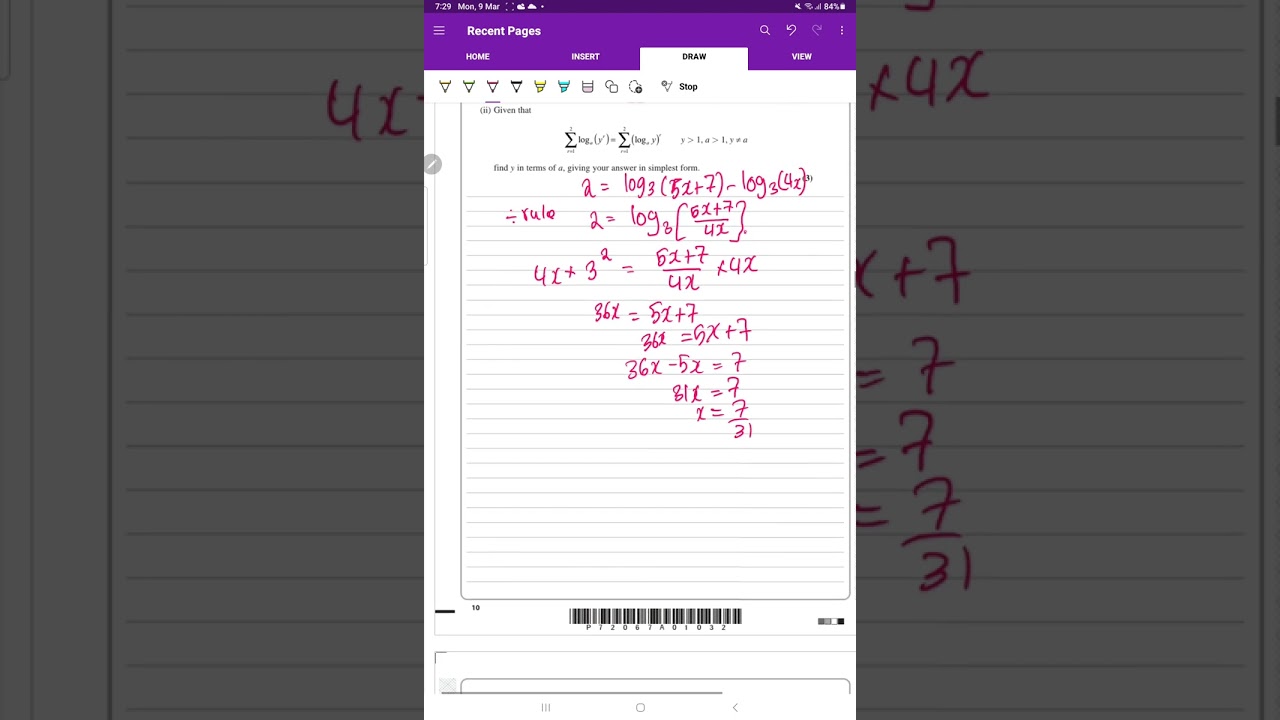 7:29 Mon, 9 Mar 84%
Recent Pages
HOME INSERT DRAW VIEW
Stop
(ii) Given that
∑_{r=1}^{2} log_a (y^r) = ∑_{r=1}^{2} (log_a y)^r y > 1, a > 1, y ≠ a
find y in terms of a, giving your answer in simplest form.
(3)
2 = log₃(5x+7) - log₃(4x)
÷ rule 2 = log₃[5x+7/4x]
4x × 3² = 5x+7/4x × 4x
36x = 5x+7
36x = 5x+7
36x - 5x = 7
31x = 7
x = 7/31
10
P72067A01032
4x
×4x
x+7
= 7
= 7
= 7/31